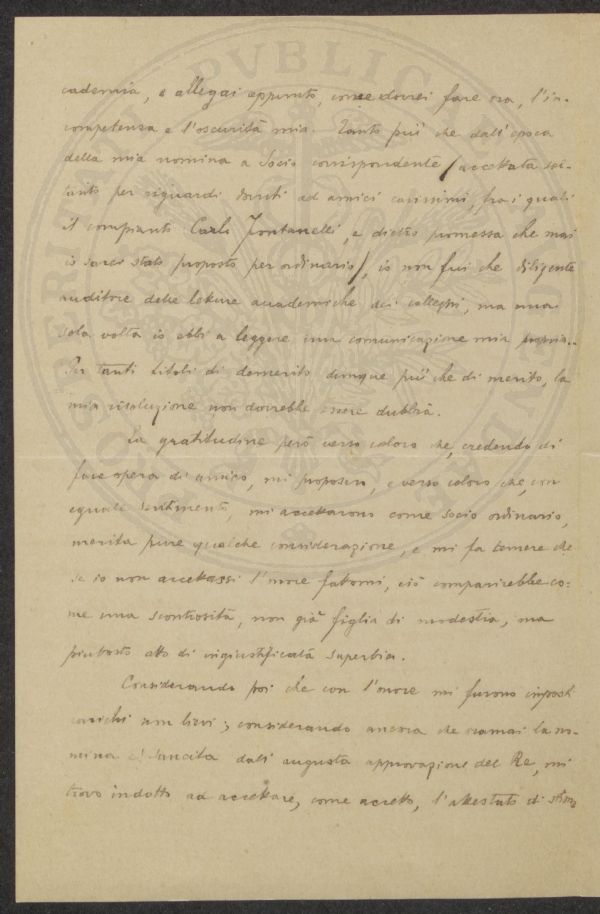 cademia, e allegai appunto, come dovrei fare ora, l'in-
competenza e l'oscurità mia. Tanto più che dall'epoca
della mia nomina a Socio corrispondente (accettata sol-
tanto per riguardi dovuti ad amici carissimi, fra i quali
il compianto Carlo Fontanelli, e dietro promessa che mai
io sarei stato proposto per ordinario), io non fui che diligente
auditore delle letture accademiche dei colleghi, ma una
sola volta io ebbi a leggere una comunicazione mia propria..
Per tanti titoli di demerito dunque più che di merito, la
mia risoluzione non dovrebbe essere dubbia.
La gratitudine però verso coloro che, credendo di
fare opera di amico, mi proposero, e verso coloro che, con
eguale sentimento, mi accettarono come socio ordinario,
merita pure qualche considerazione, e mi fa temere che
se io non accettassi l'onore fattomi, ciò comparirebbe co-
me una scontrosità, non già figlia di modestia, ma
piuttosto atto di ingiustificata superbia.
Considerando poi che con l'onore mi furono imposti
carichi non lievi; considerando ancora che oramai la no-
mina è sancita dall'augusta approvazione del Re, mi
trovo indotto ad accettare, come accetto, l'attestato di stima
PVBLICAE
PROSPERITATI